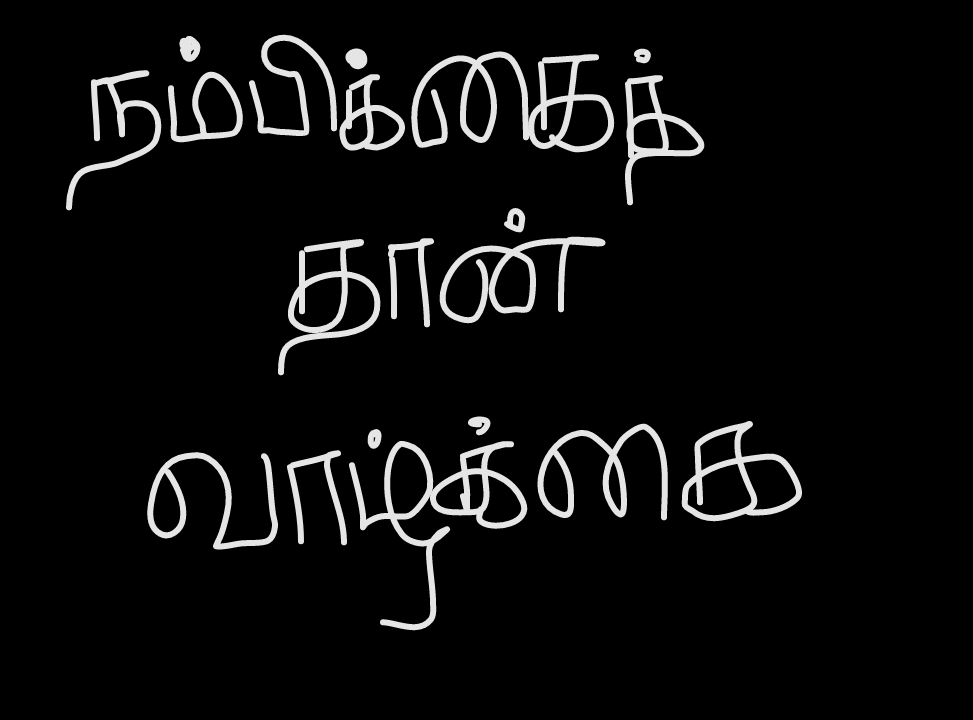 நம்பிக்கைத்
தான்
வாழ்க்கை